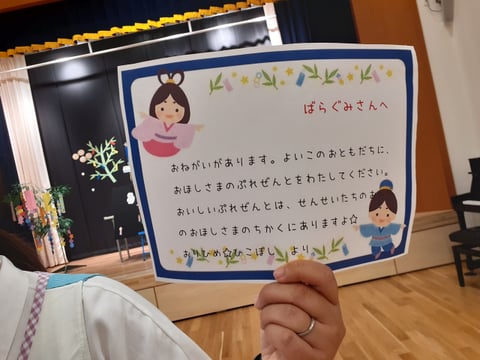 ばらぐみさんへ
おねがいがあります。よいこのおともだちに、
おほしさまのぷれぜんとをわたしてください。
おいしいぷれぜんとは、せんせいたちの
のおほしさまのちかくにありますよ☆
おりひめ☆ひこぼし より